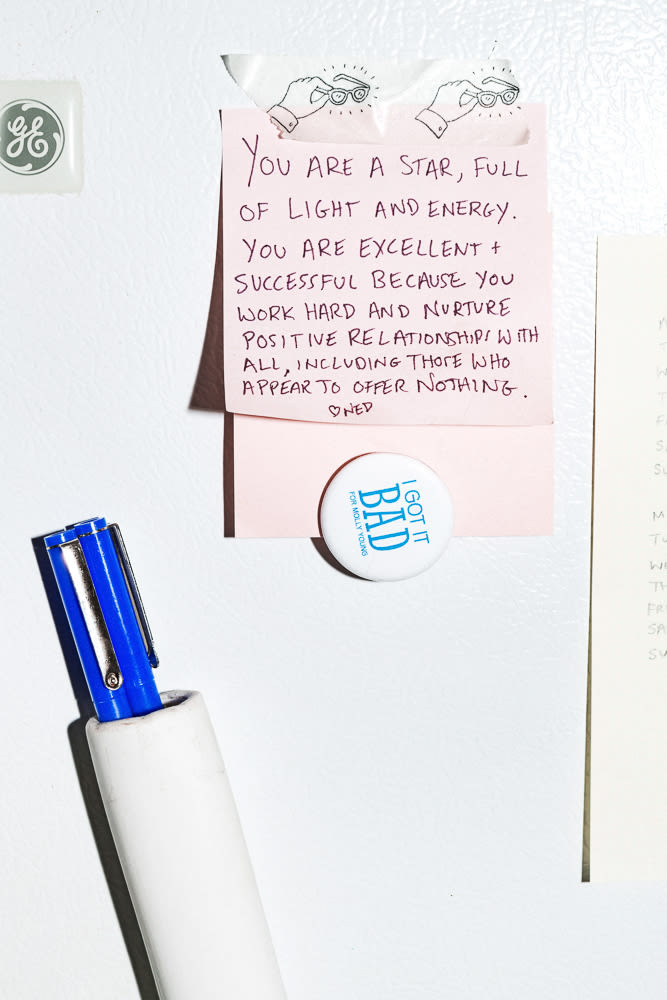 GE
YOU ARE A STAR, FULL
OF LIGHT AND ENERGY.
YOU ARE EXCELLENT +
SUCCESSFUL BECAUSE YOU
WORK HARD AND NURTURE
POSITIVE RELATIONSHIPS WITH
ALL, INCLUDING THOSE WHO
APPEAR TO OFFER NOTHING.
♡NED
I GOT IT
BAD
FOR MOLLY YOUNG
M
T
W
T
F
S
SU
M
TU
WE
TH
FRI
SA
SU